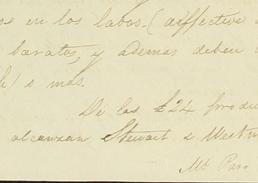 en los labos. (diffective
barates, y ademas deben
s mas.
De las £24 produ
alcanzan Stewart & Westw
Mt Paro